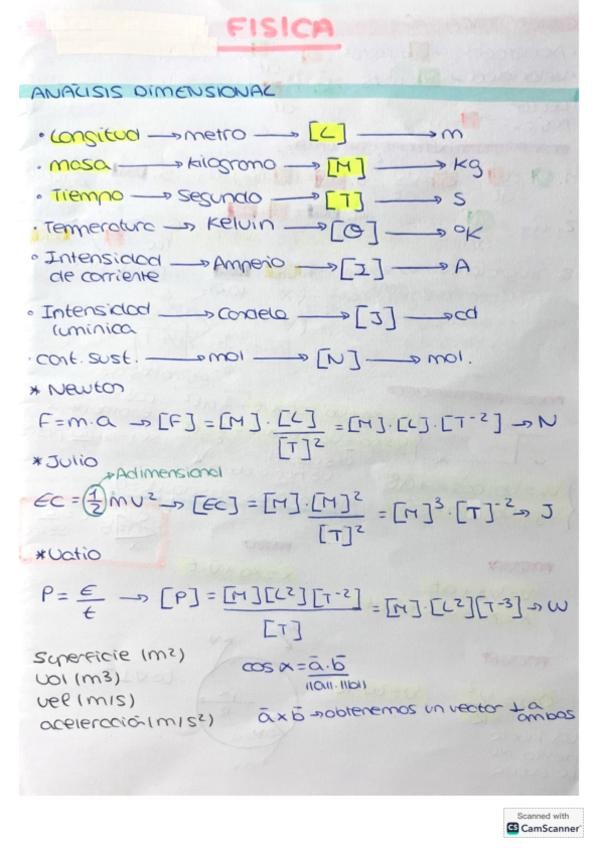 FISICA
ANÁLISIS DIMENSIONAL
• Longitud → metro → [L] → m
• masa → kilogramo → [M] → Kg
• Tiempo → Segundo → [T] → S
• Temperatura → Kelvin → [Θ] → °K
• Intensidad de corriente → Amperio → [I] → A
• Intensidad lumínica → Candela → [J] → cd
· cant. sust. → mol → [N] → mol.
* Newton
F = m·a → [F] = [M] · [L]/[T]² = [M]·[L]·[T⁻²] → N
* Julio
→ Adimensional
EC = ½ mv² → [EC] = [M] · [M]²/[T]² = [M]³·[T]⁻² → J
* Vatio
P = E/t → [P] = [M][L²][T⁻²]/[T] = [M]·[L²][T⁻³] → W
Superficie (m²)
Vol (m3)
vel (m/s)
aceleración (m/s²)
cos α = a̅·b̅/||a||·||b||
a̅ x b̅ → obtenemos un vector ⊥ a ambos
Scanned with
CS CamScanner